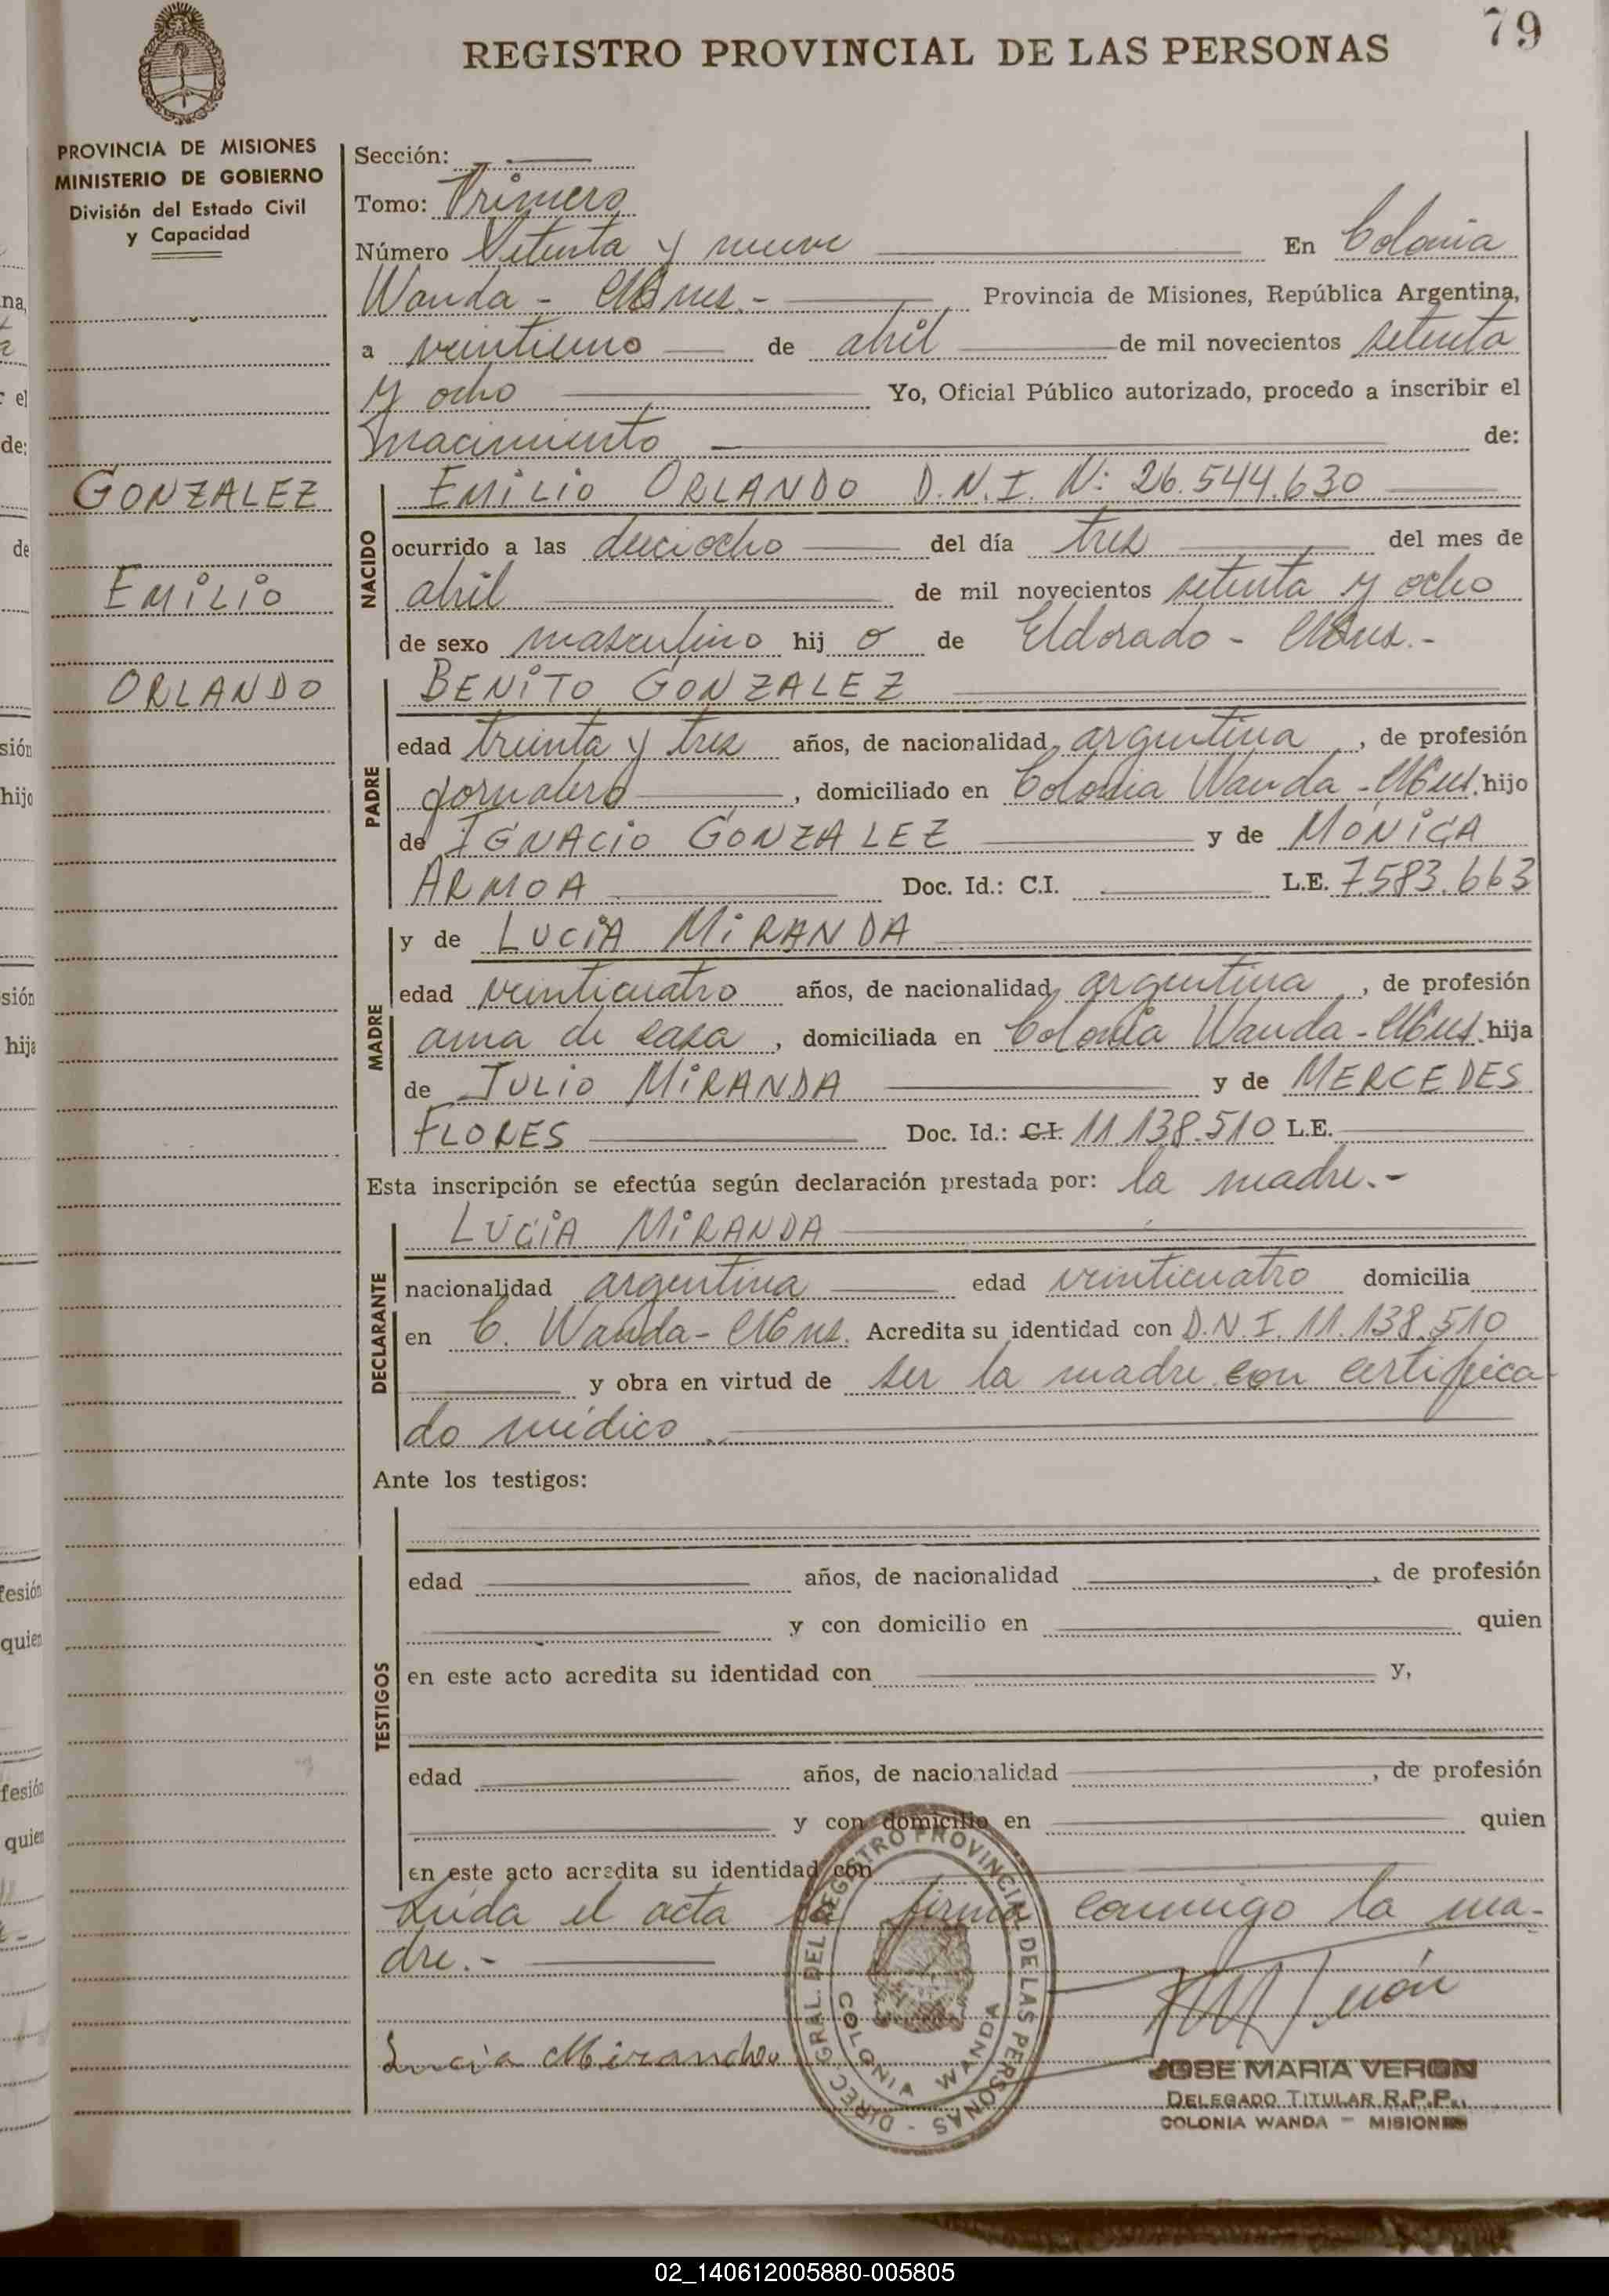 79
REGISTRO PROVINCIAL DE LAS PERSONAS
PROVINCIA DE MISIONES
MINISTERIO DE GOBIERNO
División del Estado Civil
y Capacidad
GONZALEZ
EMILIO
ORLANDO
Sección:
Tomo: Primero
Número Setenta y nueve En Colonia
Wanda - Mnes.- Provincia de Misiones, República Argentina,
a veintiuno de abril de mil novecientos setenta
y ocho Yo, Oficial Público autorizado, procedo a inscribir el
nacimiento de:
NACIDO
EMILIO ORLANDO D.N.I. N: 26.544.630
ocurrido a las dieciocho del día tres del mes de
abril de mil novecientos setenta y ocho
de sexo masculino hij o de Eldorado - Mnes.-
PADRE
BENITO GONZALEZ
edad treinta y tres años, de nacionalidad argentina, de profesión
jornalero, domiciliado en Colonia Wanda - Mnes. hijo
de IGNACIO GONZALEZ y de MONICA
ARMOA Doc. Id.: C.I. L.E. 7583.663
MADRE
y de LUCIA MIRANDA
edad veinticuatro años, de nacionalidad argentina, de profesión
ama de casa, domiciliada en Colonia Wanda - Mnes. hija
de JULIO MIRANDA y de MERCEDES
FLORES Doc. Id.: C.I. 11.138.510 L.E.
Esta inscripción se efectúa según declaración prestada por: la madre.-
DECLARANTE
LUCIA MIRANDA
nacionalidad argentina edad veinticuatro domicilia
en C. Wanda - Mnes. Acredita su identidad con D.N.I. 11.138.510
y obra en virtud de ser la madre con certifica-
do médico.
Ante los testigos:
TESTIGOS
edad años, de nacionalidad , de profesión
y con domicilio en quien
en este acto acredita su identidad con y,
edad años, de nacionalidad , de profesión
y con domicilio en quien
en este acto acredita su identidad con
Leída el acta la firma conmigo la ma-
dre.-
Lucia Miranda
DIREC. GRAL. DEL REGISTRO PROVINCIAL DE LAS PERSONAS -
COLONIA WANDA
JOSE MARIA VERON
DELEGADO TITULAR R.P.P.
COLONIA WANDA - MISIONES
02_140612005880-005805